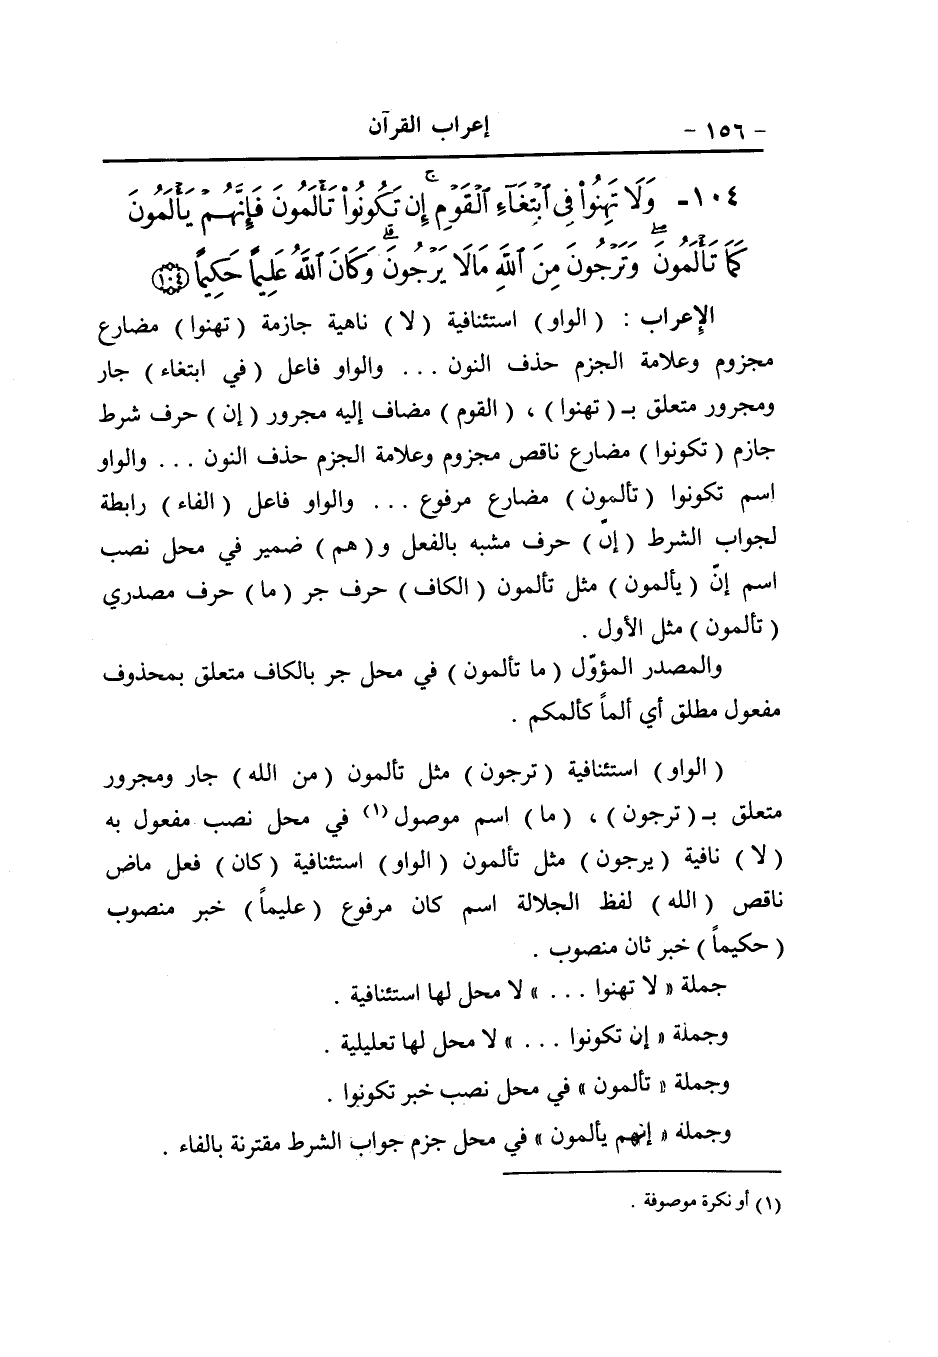 - ١٥٦ - إعراب القرآن
١٠٤- وَلَا تَهِنُوا۟ فِى ٱبْتِغَآءِ ٱلْقَوْمِ ۖ إِن تَكُونُوا۟ تَأْلَمُونَ فَإِنَّهُمْ يَأْلَمُونَ
كَمَا تَأْلَمُونَ ۖ وَتَرْجُونَ مِنَ ٱللَّهِ مَالَا يَرْجُونَ ۗ وَكَانَ ٱللَّهُ عَلِيمًا حَكِيمًا ١٠٤
الإعراب : ( الواو ) استئنافية ( لا ) ناهية جازمة ( تهنوا ) مضارع
مجزوم وعلامة الجزم حذف النون ... والواو فاعل ( في ابتغاء ) جار
ومجرور متعلق بـ ( تهنوا ) ، ( القوم ) مضاف إليه مجرور ( إن ) حرف شرط
جازم ( تكونوا ) مضارع ناقص مجزوم وعلامة الجزم حذف النون ... والواو
اسم تكونوا ( تألمون ) مضارع مرفوع ... والواو فاعل ( الفاء ) رابطة
لجواب الشرط ( إنّ ) حرف مشبه بالفعل و ( هم ) ضمير في محل نصب
اسم إنّ ( يألمون ) مثل تألمون ( الكاف ) حرف جر ( ما ) حرف مصدري
( تألمون ) مثل الأول .
والمصدر المؤوّل ( ما تألمون ) في محل جر بالكاف متعلق بمحذوف
مفعول مطلق أي ألماً كألمكم .
( الواو ) استئنافية ( ترجون ) مثل تألمون ( من الله ) جار ومجرور
متعلق بـ ( ترجون ) ، ( ما ) اسم موصول (١) في محل نصب مفعول به
( لا ) نافية ( يرجون ) مثل تألمون ( الواو ) استئنافية ( كان ) فعل ماض
ناقص ( الله ) لفظ الجلالة اسم كان مرفوع ( عليماً ) خبر منصوب
( حكيماً ) خبر ثان منصوب .
جملة « لا تهنوا ... » لا محل لها استئنافية .
وجملة « إن تكونوا ... » لا محل لها تعليلية .
وجملة « تألمون » في محل نصب خبر تكونوا .
وجملة « إنهم يألمون » في محل جزم جواب الشرط مقترنة بالفاء .
(١) أو نكرة موصوفة .